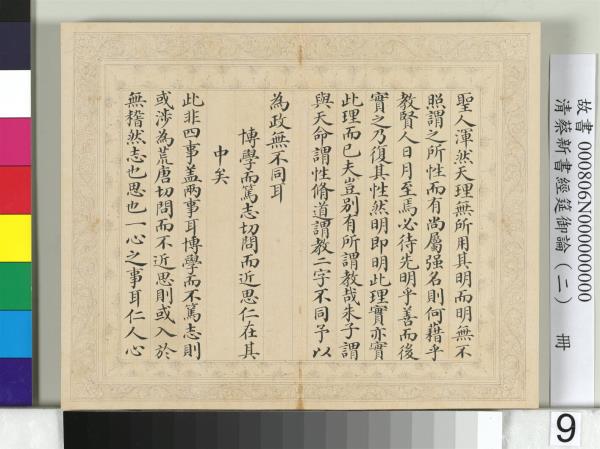 聖人渾然天理無所用其明而明無不
照謂之所性而有尚屬强名則何藉乎
教賢人日月至焉必待先明乎善而後
實之乃復其性然明即明此理實亦實
此理而已夫豈別有所謂教哉朱子謂
與天命謂性脩道謂教二字不同予以
為政無不同耳
博學而篤志切問而近思仁在其
中矣
此非四事盖兩事耳博學而不篤志則
或涉為荒唐切問而不近思則或入於
無稽然志也思也一心之事耳仁人心
故書 000806N000000000
清蔡新書經筵御論（二） 冊
9